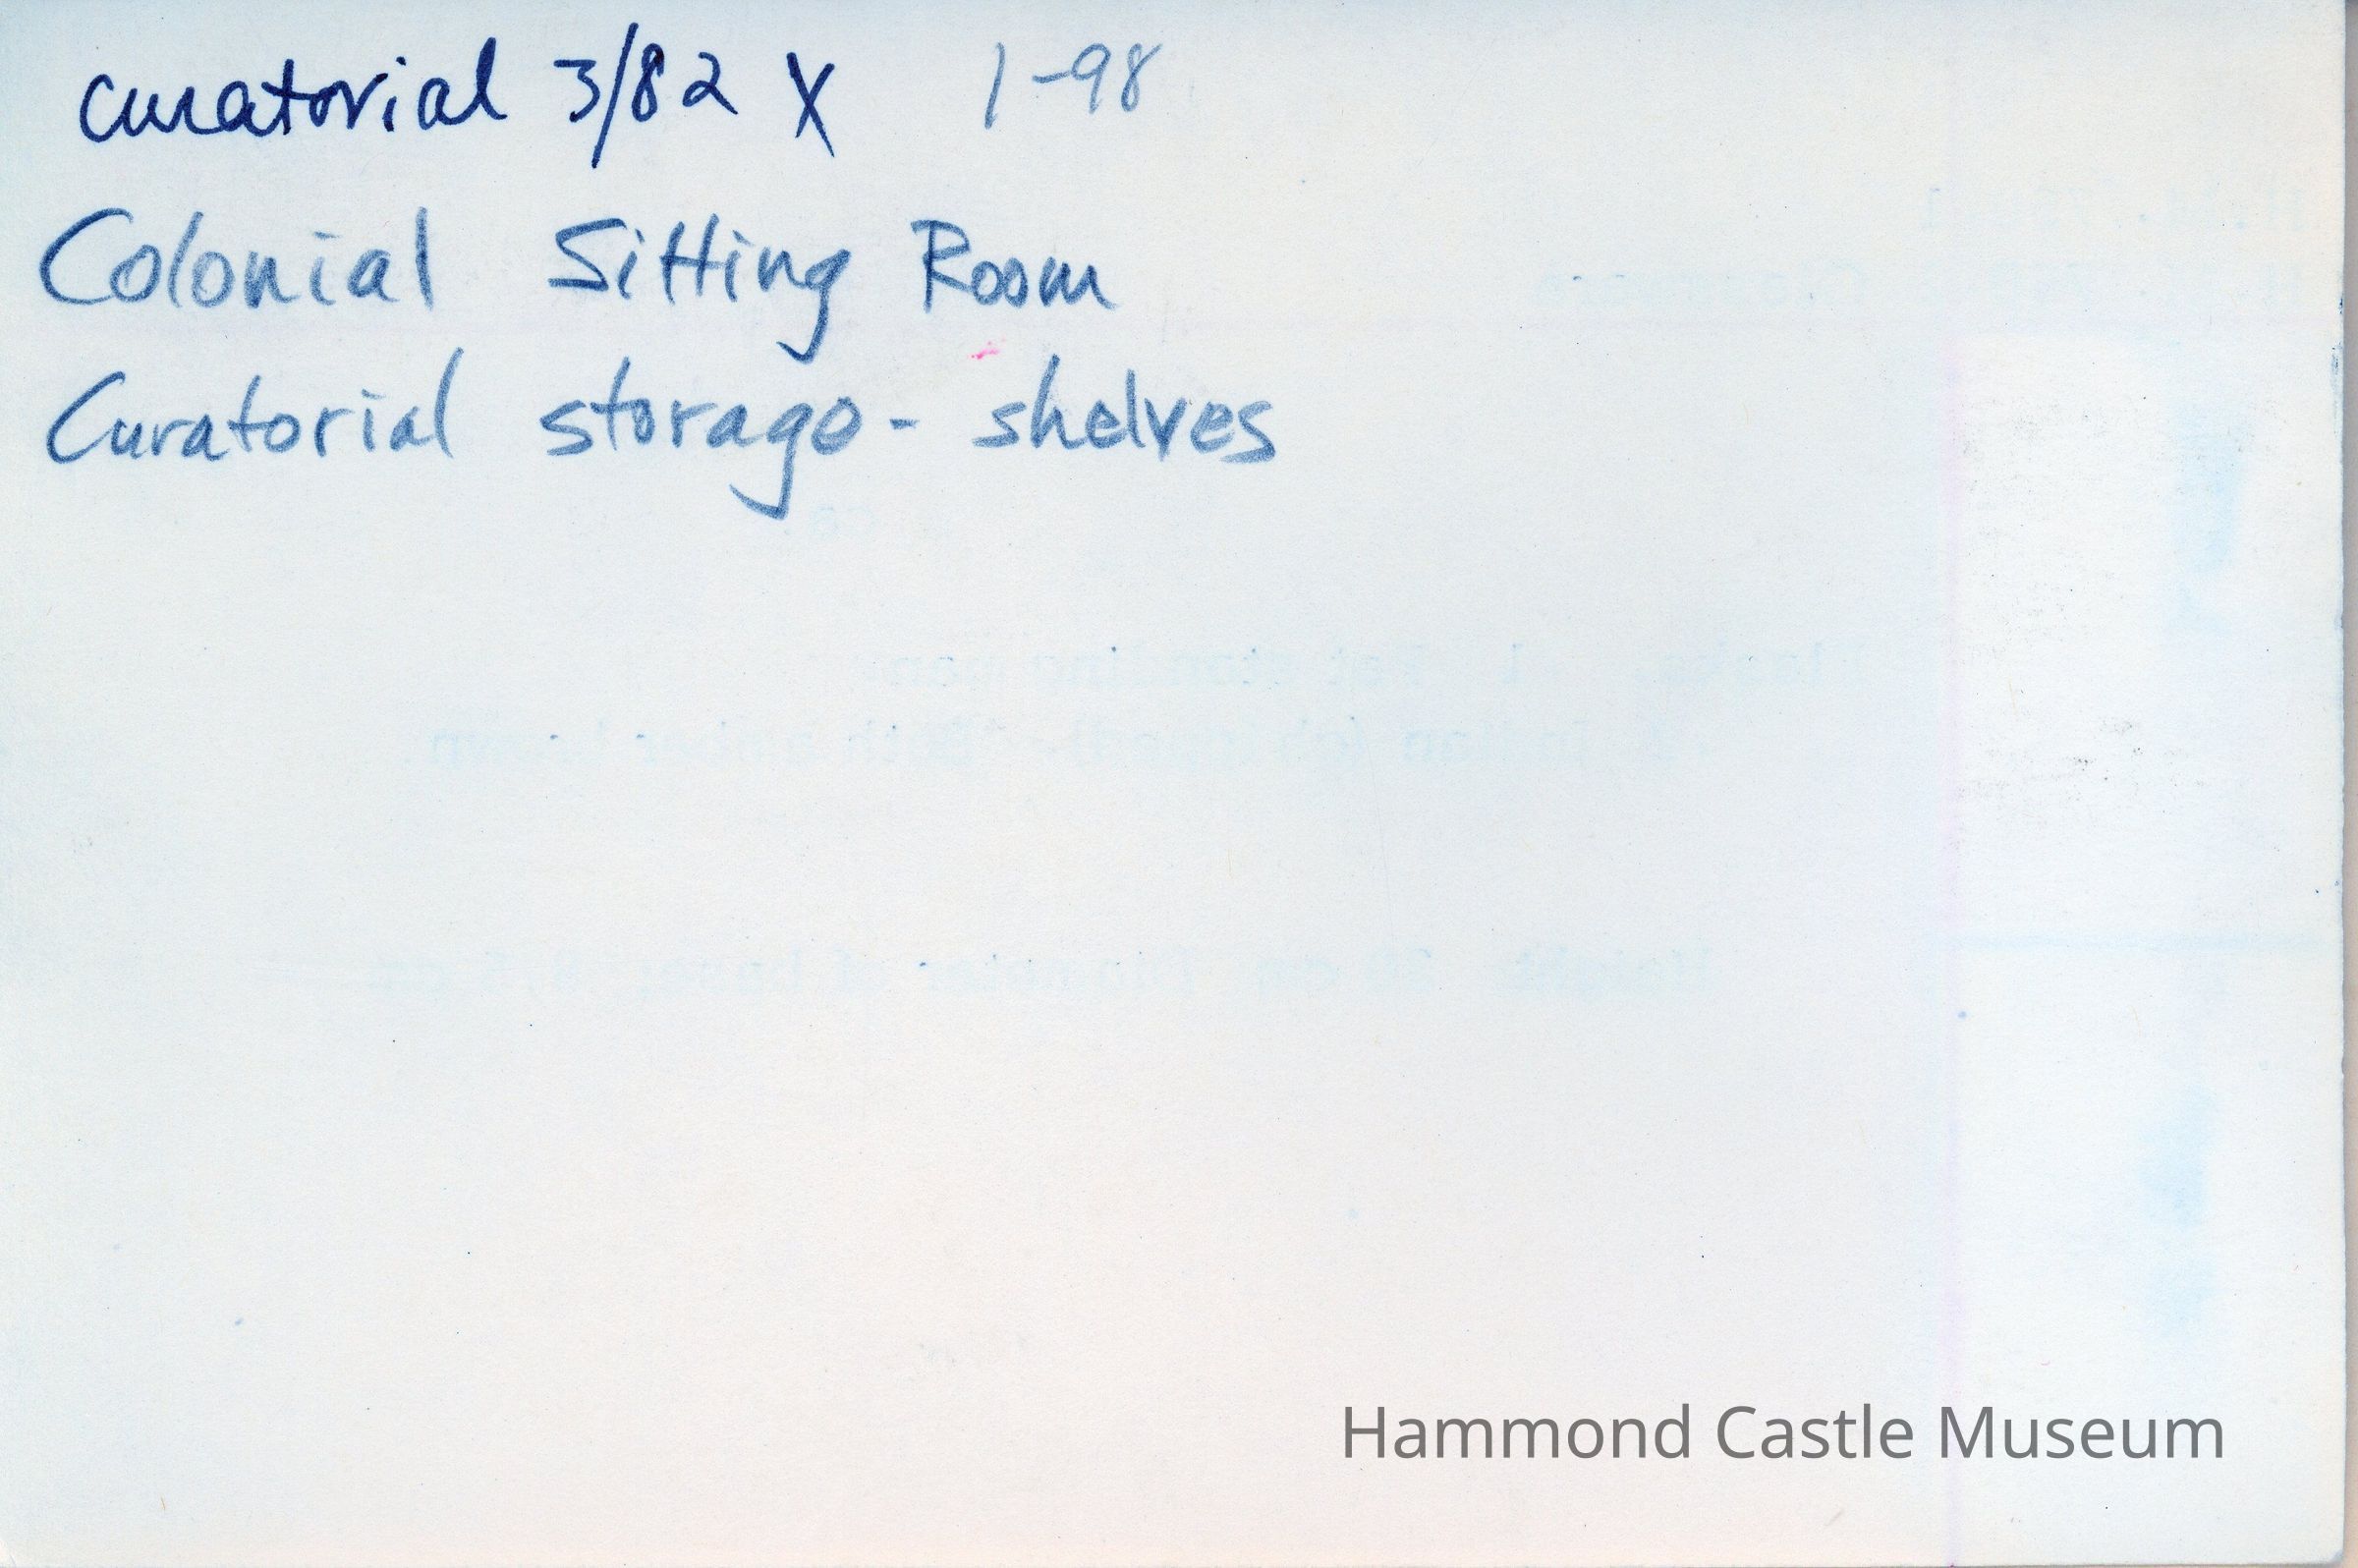 curatorial 3/82 X 1-98
Colonial Sitting Room
Curatorial storage - shelves
Hammond Castle Museum